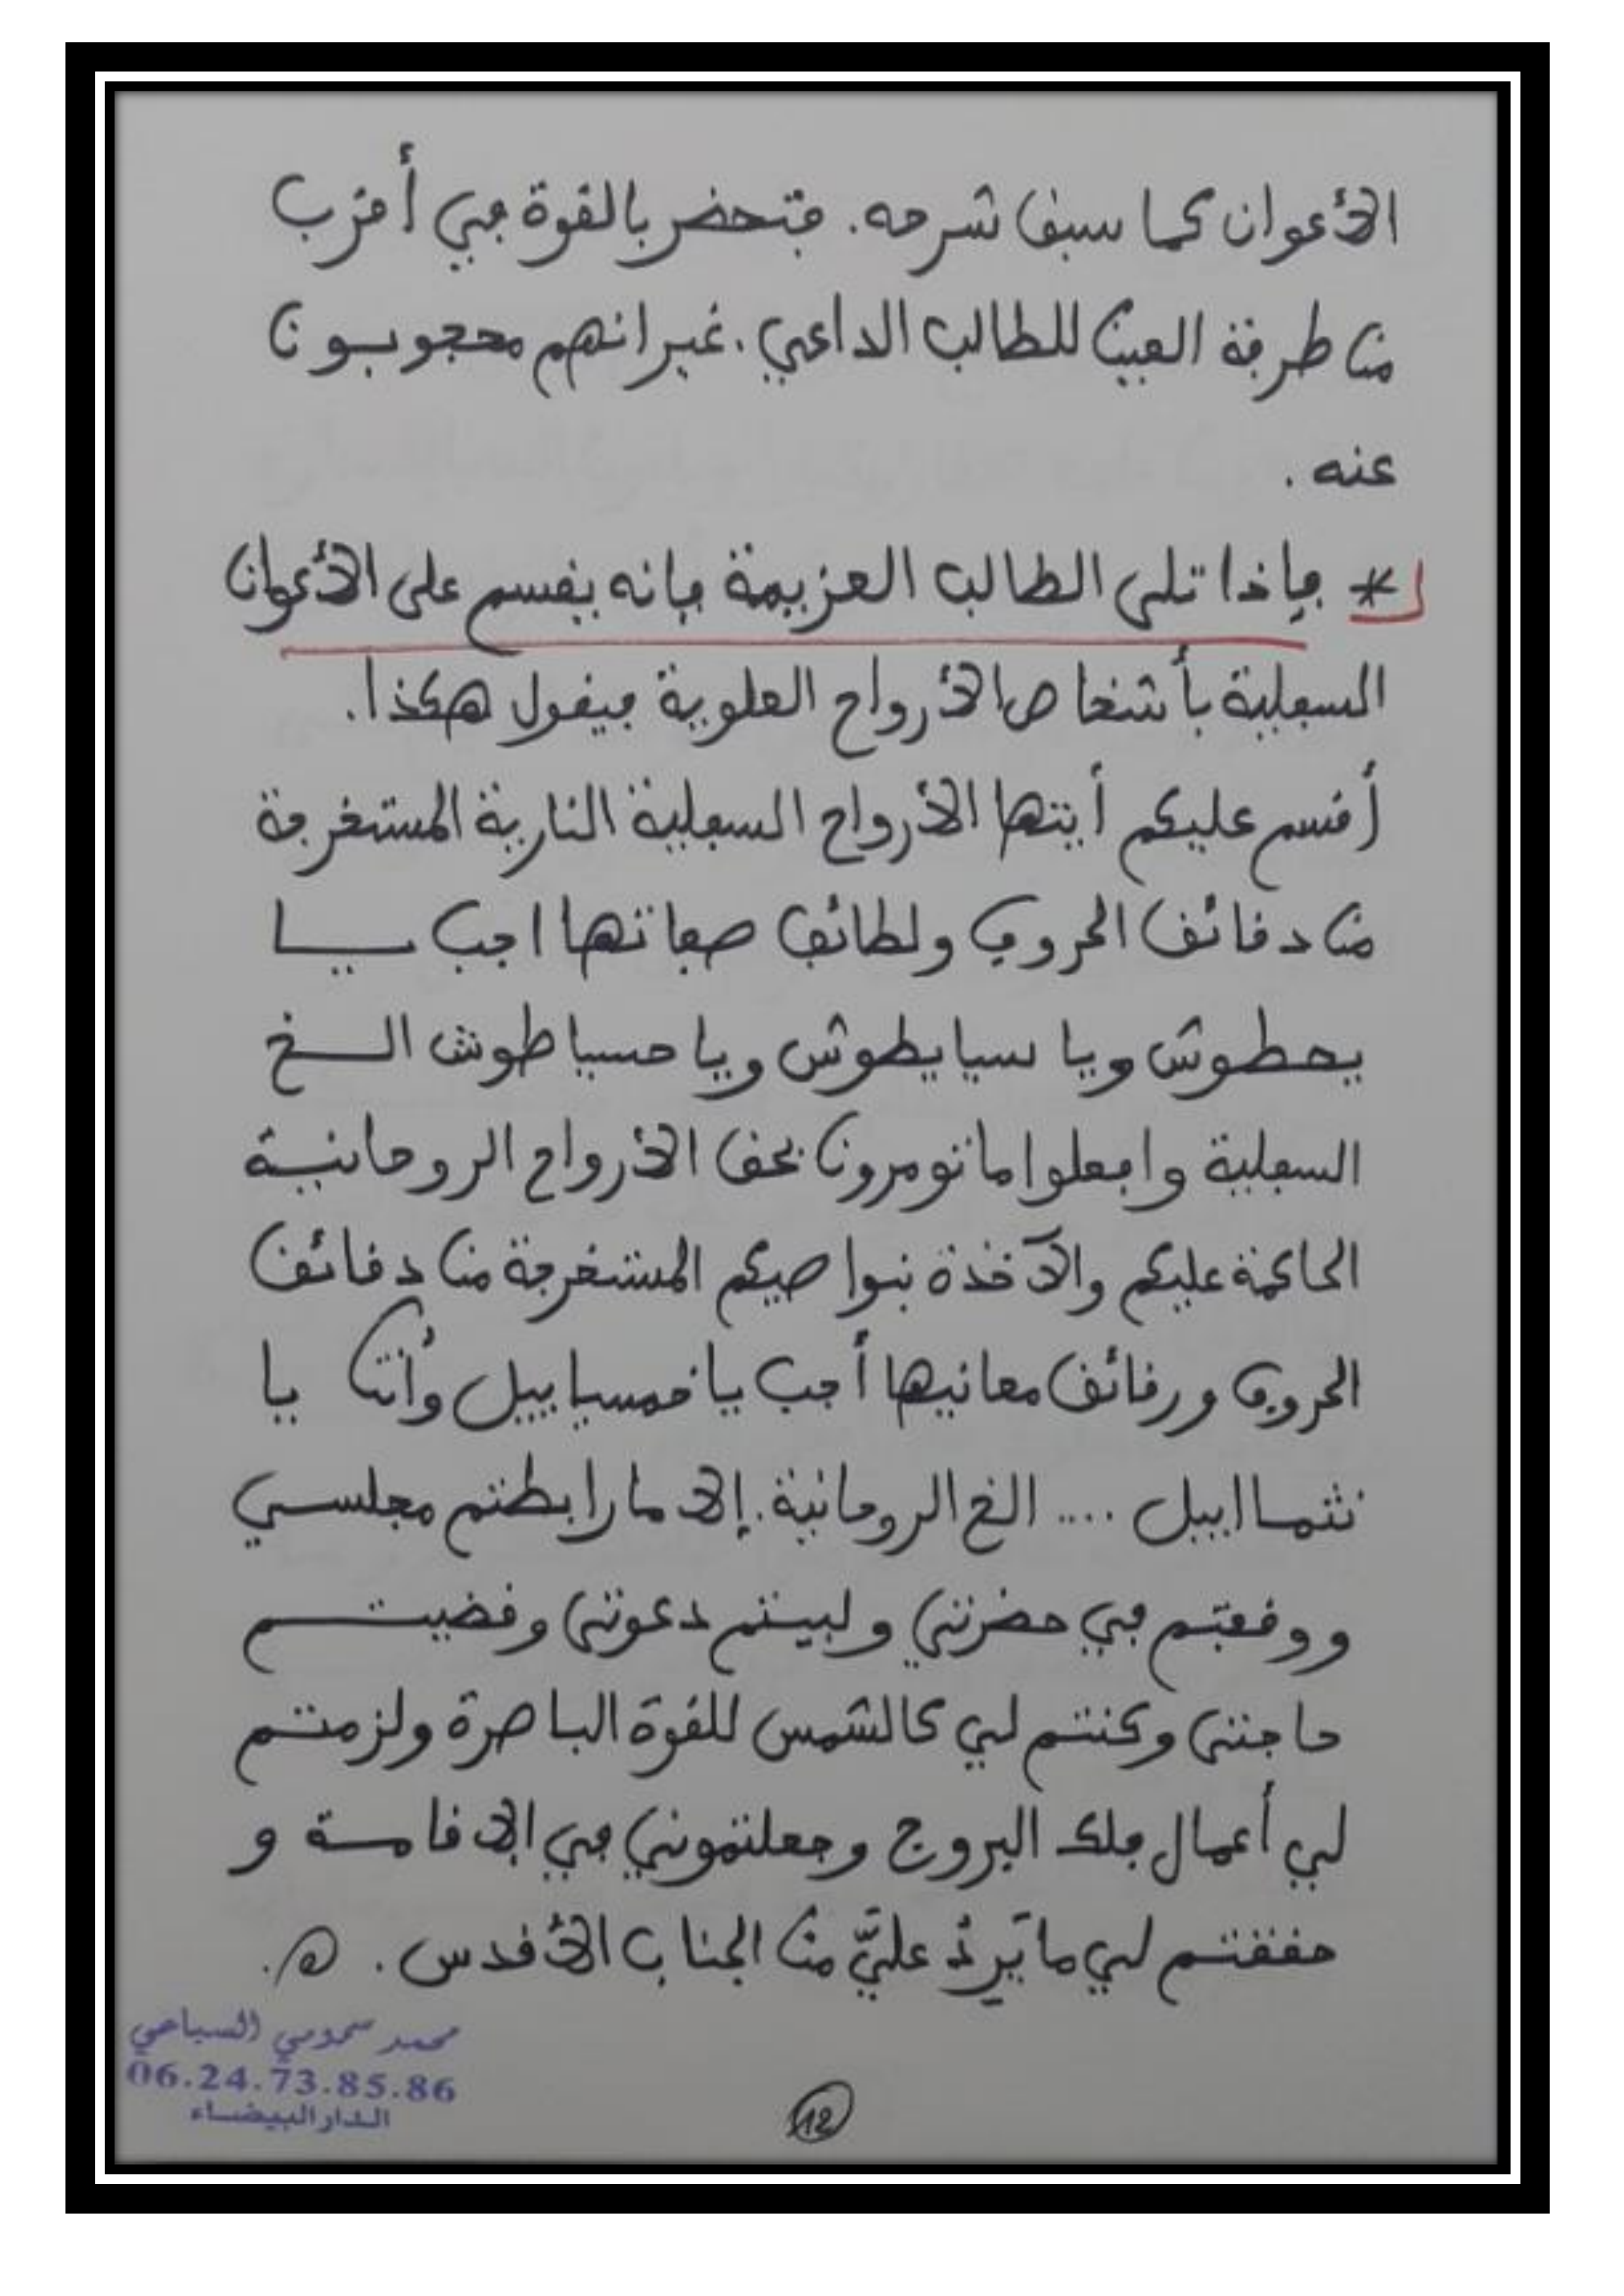 الأعوان كما سبق شرحه. فتحضر بالقوة في أقرب
من طرفة العين للطالب الداعي. غير انهم محجوبون
عنه.
* فإذا تلى الطالب العزيمة فإنه يقسم على الأعوان
السفلية بأشخاص الأرواح العلوية فيقول هكذا.
أقسم عليكم أيتها الأرواح السفلية النارية المستخرجة
من دقائق الحروف ولطائف صفاتها اجب يا
يحطوش ويا سيايطوش ويا حسياطوش الخ
السفلية وافعلوا ما تومرون بحق الأرواح الروحانية
الحاكمة عليكم والآخذة بنواصيكم المستخرجة من دقائق
الحروف ورقائق معانيها أجب يا خمسياييل وأنت يا
نثمااييل .... الخ الروحانية. إلا ما رابطتم مجلسي
ووقفتم في حضرتي ولبيتم دعوتي وقضيتم
حاجتي وكنتم لي كالشمس للقوة الباصرة ولزمتم
لي أعمال فلك البروج وجعلتموني في الاقامة و
حققتم لي ما يَرِدُ عليَّ من الجناب الأقدس. ه.
محمد سمومي السباعي
06.24.73.85.86
الدار البيضاء
12